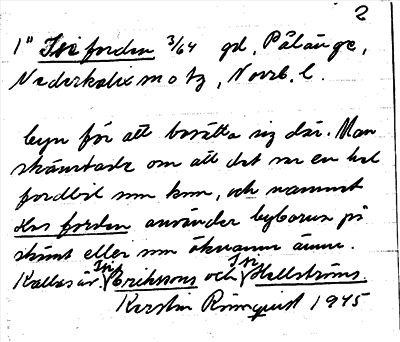 2
1" Isiforden 3/64 gd, Pålänge,
Nederkalix m o tg, Norrb. l.
byn för att bosätta sig där. Man
skämtade om att det var en hel
fordbil som kom, och namnet
Isiforden använder byborna på
skämt eller som öknamn ännu.
Kallas är. In Erikssons och In Hellströms.
Kerstin Rönnquist 1945